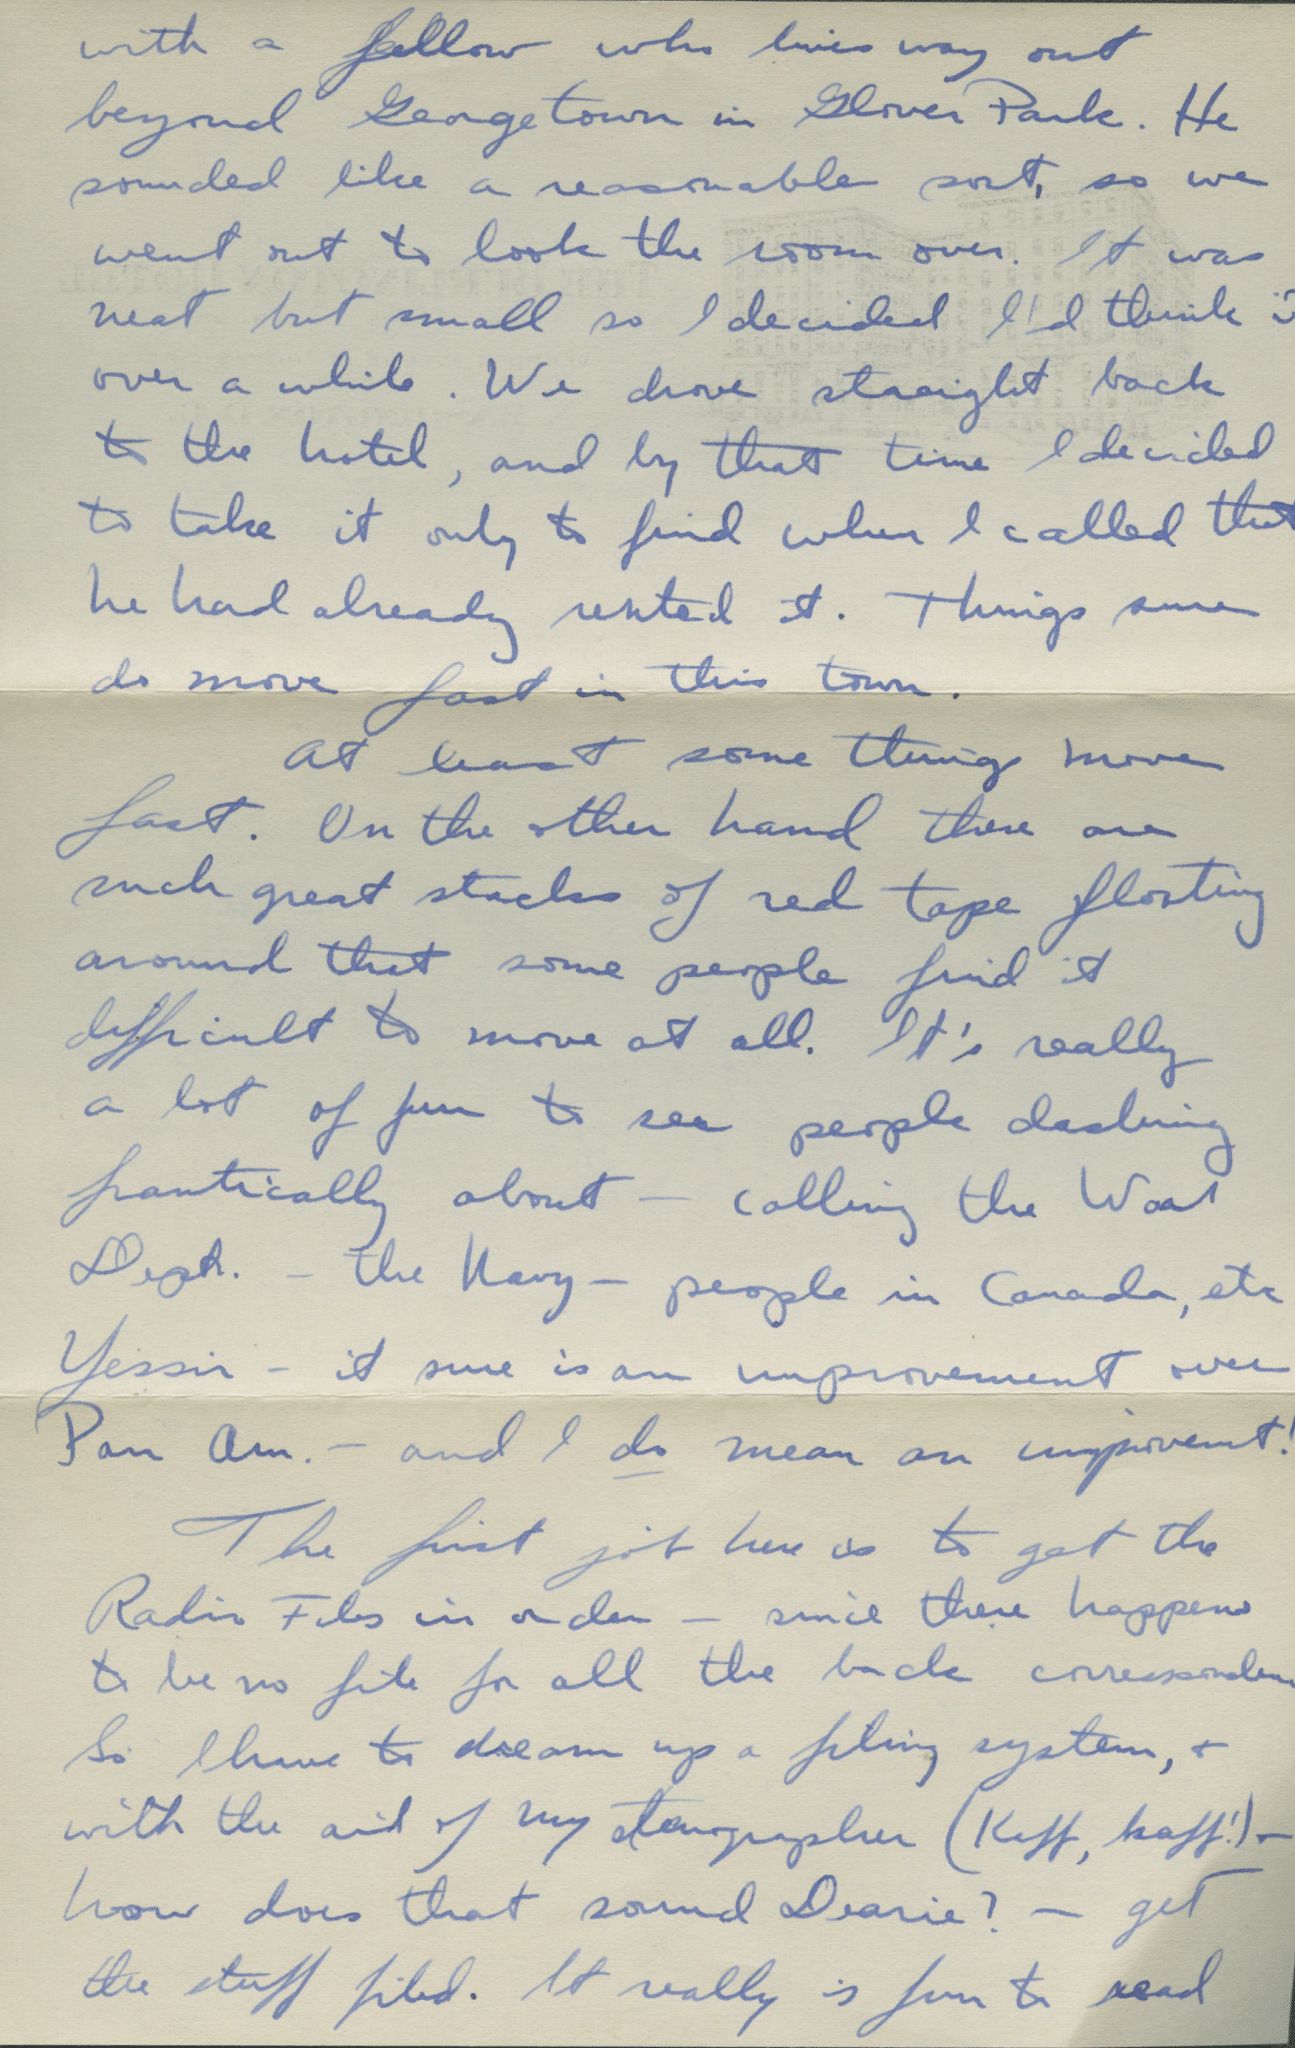 with a fellow who lives way out
beyond Georgetown in Glover Park. He
sounded like a reasonable sort, so we
went out to look the room over. It was
neat but small so I decided I'd think it
over a while. We drove straight back
to the hotel, and by that time I decided
to take it only to find when I called that
he had already rented it. Things sure
do move fast in this town.
At least some things move
fast. On the other hand there are
such great stacks of red tape floating
around that some people find it
difficult to move at all. It's really
a lot of fun to see people dashing
frantically about — calling the War
Dept. — the Navy — people in Canada, etc
Yessir — it sure is an improvement over
Pan Am. — and I do mean an improvemt!
The first job here is to get the
Radio Files in order — since there happens
to be no file for all the back corresponden
So I have to dream up a filing system, +
with the aid of my stenographer (Kaff, kaff!) —
how does that sound Dearie? — get
the stuff filed. It really is fun to read